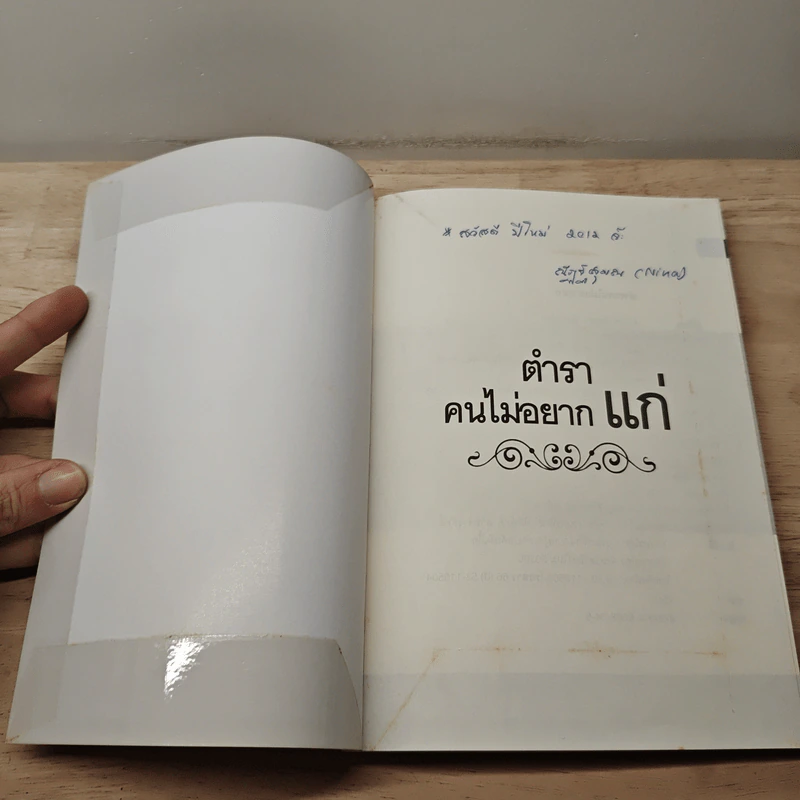 * สวัสดี ปีใหม่ 2012 จ้ะ
(Nina)
ตำรา
คนไม่อยาก แก่